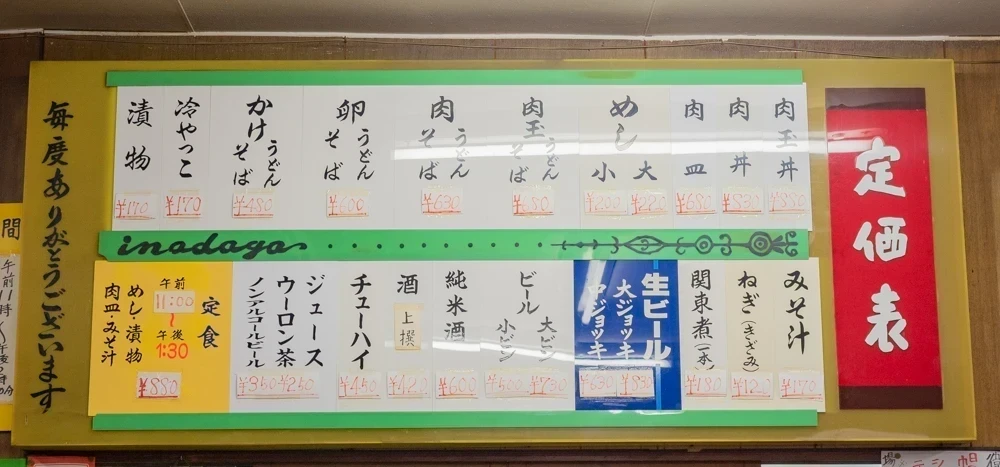 定価表
肉玉丼
¥880
肉丼
¥830
肉皿
¥680
めし
大 ¥220
小 ¥200
肉玉
うどん
そば
¥680
肉
うどん
そば
¥630
卵
うどん
そば
¥600
かけ
うどん
そば
¥480
冷やっこ
¥170
漬物
¥170
inadaga
みそ汁
¥170
ねぎ(きざみ)
¥120
関東煮(一本)
¥180
生ビール
大ジョッキ ¥830
中ジョッキ ¥630
ビール
大ビン ¥730
小ビン ¥500
純米酒
¥600
酒
上撰
¥420
チューハイ
¥450
ジュース
ウーロン茶
ノンアルコールビール
¥350 ¥250
定食
午前
11:00
~
午後
1:30
めし・漬物
肉皿・みそ汁
¥880
毎度ありがとうございます
間
午前11時